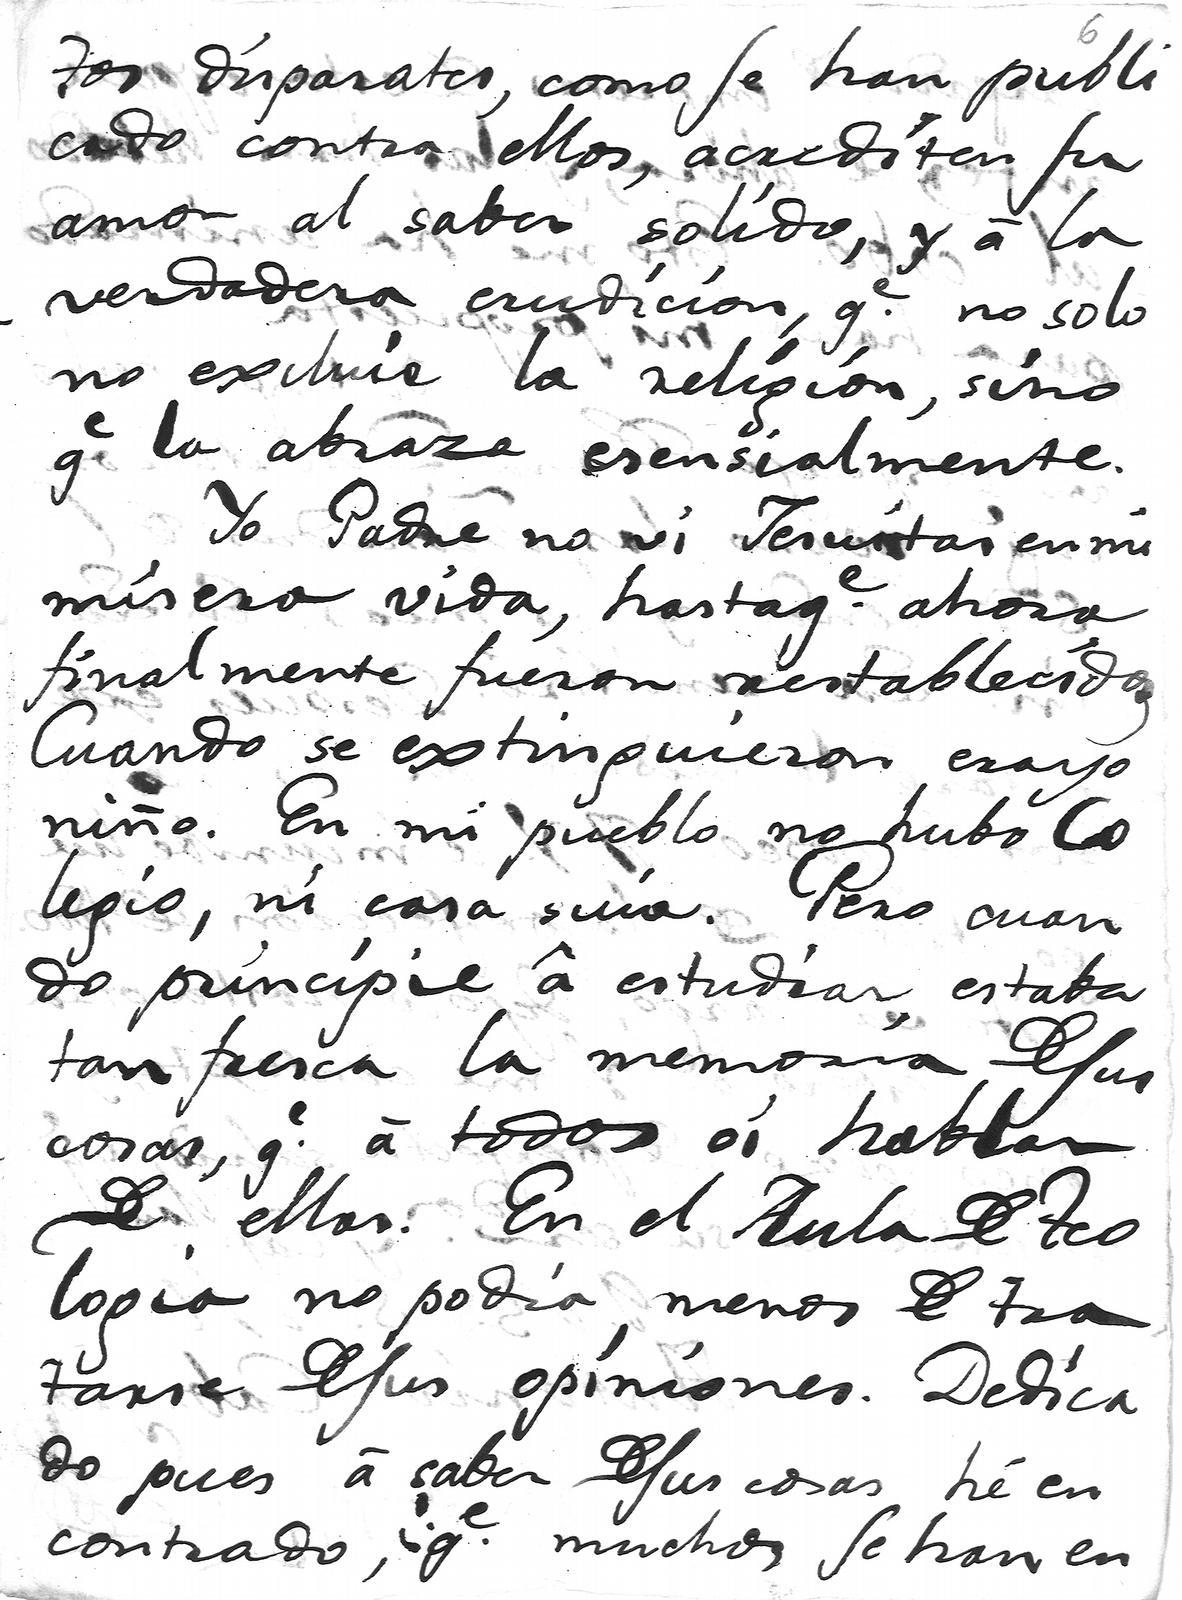 6
tos disparates, como se han publi
cado contra ellos, acrediten su
amor al saber solido, y â la
verdadera erudicion, qe. no solo
no excluie la religión, sino
qe. la abraza esensialmente.
Yo Padre no vi Jesuitas en mi
misera vida, hasta qe. ahora
finalmente fueron restablecidos
Cuando se extinguieron era yo
niño. En mi pueblo no hubo Co
legio, ni casa suia. Pero cuan
do principie â estudiar, estaba
tan fresca la memoria De sus
cosas, qe. â todos oí hablar
De ellos. En el Aula De Teo
logia no podia menos De tra
tarse De sus opiniones. Dedica
do pues â saber De sus cosas hé en
contrado, qe. muchos se han en